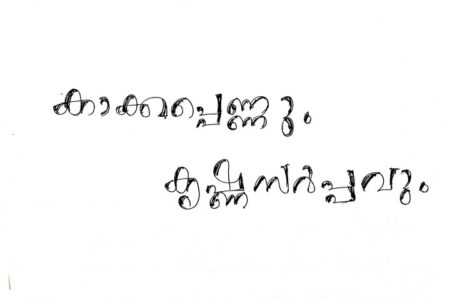 കാക്കപ്പെണ്ണും
കൃഷ്ണസർപ്പവും